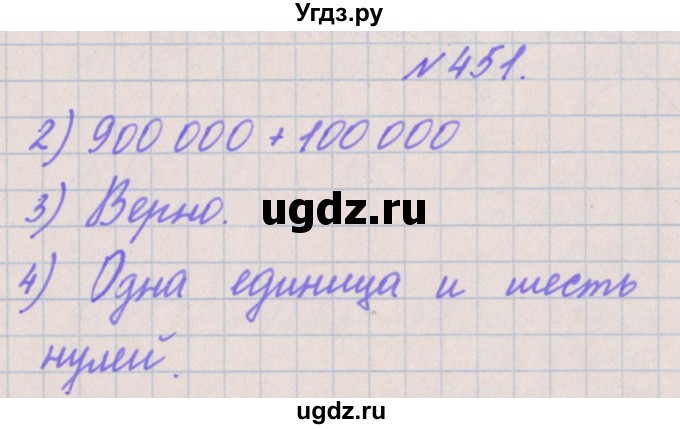 Угдз.ру
№451.
2) 900 000 + 100 000
3) Верно.
ugdz.ru
4) Одна единица и шесть
нулей.
ugdz.ru